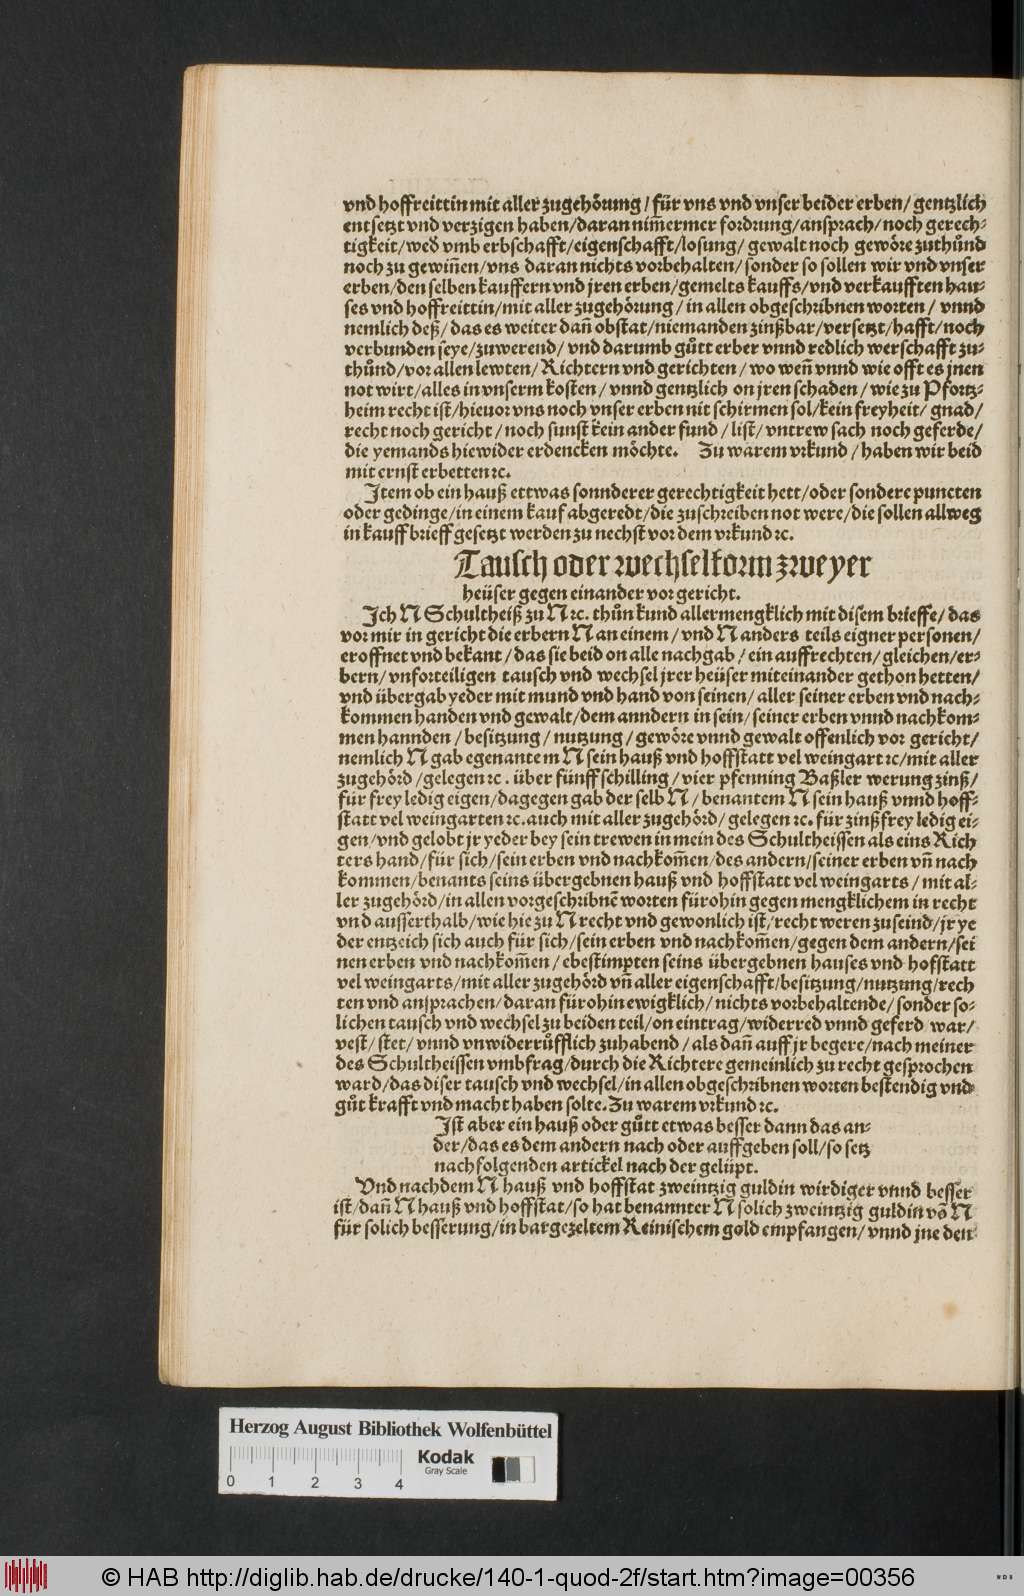 vnd hoffreittin mit aller zugehörung / für vns vnd vnser beider erben / gentzlich
entsetzt vnd verzigen haben / daran nim̄ermer fordrung / ansprach / noch gerech⸗
tigkeit / wed̕ vmb erbschafft / eigenschafft / losung / gewalt noch gewöre zuthůnd
noch zu gewiñen / vns daran nichts vorbehalten / sonder so sollen wir vnd vnser
erben / den selben kauffern vnd jren erben / gemelts kauffs / vnd verkaufften hau⸗
ses vnd hoffreittin / mit aller zugehörung / in allen obgeschribnen worten / vnnd
nemlich deß / das es weiter dañ obstat / niemanden zinßbar / versetzt / hafft / noch
verbunden seye / zuwerend / vnd darumb gůtt erber vnnd redlich werschafft zu⸗
thůnd / vor allen lewten / Richtern vnd gerichten / wo weñ vnnd wie offt es jnen
not wirt / alles in vnserm kosten / vnnd gentzlich on jren schaden / wie zu Pfortz⸗
heim recht ist / hieuor vns noch vnser erben nit schirmen sol / kein freyheit / gnad /
recht noch gericht / noch sunst kein ander fund / list / vntrew sach noch geferde /
die yemands hiewider erdencken möchte. Zu warem vrkund / haben wir beid
mit ernst erbetten ꝛc.
Item ob ein hauß ettwas sonnderer gerechtigkeit hett / oder sondere puncten
oder gedinge / in einem kauf abgeredt / die zuschreiben not were / die sollen allweg
in kauffbrieff gesetzt werden zu nechst vor dem vrkund ꝛc.
Tausch oder wechselform zweyer
heüser gegen einander vor gericht.
Ich N Schultheiß zu N ꝛc. thůn kund allermengklich mit disem brieffe / das
vor mir in gericht die erbern N an einem / vnd N anders teils eigner personen /
eroffnet vnd bekant / das sie beid on alle nachgab / ein auffrechten / gleichen / er⸗
bern / vnforteiligen tausch vnd wechsel jrer heüser miteinander gethon hetten /
vnd übergab yeder mit mund vnd hand von seinen / aller seiner erben vnd nach⸗
kommen handen vnd gewalt / dem anndern in sein / seiner erben vnnd nachkom⸗
men hannden / besitzung / nutzung / gewöre vnnd gewalt offenlich vor gericht /
nemlich N gab egenantem N sein hauß vnd hoffstatt vel weingart ꝛc / mit aller
zugehörd / gelegen ꝛc. über fünff schilling / vier pfenning Baßler werung zinß /
für frey ledig eigen / dagegen gab der selb N / benantem N sein hauß vnnd hoff⸗
statt vel weingarten ꝛc. auch mit aller zugehörd / gelegen ꝛc. für zinßfrey ledig ei⸗
gen / vnd gelobt jr yeder bey sein trewen in mein des Schultheissen als eins Rich
ters hand / für sich / sein erben vnd nachkom̄en / des andern / seiner erben vñ nach
kommen / benants seins übergebnen hauß vnd hoffstatt vel weingarts / mit al⸗
ler zugehörd / in allen vorgeschribnē worten fürohin gegen mengklichem in recht
vnd ausserthalb / wie hie zu N recht vnd gewonlich ist / recht weren zuseind / jr ye
der entzeich sich auch für sich / sein erben vnd nachkom̄en / gegen dem andern / sei
nen erben vnd nachkom̄en / ebestimpten seins übergebnen hauses vnd hofstatt
vel weingarts / mit aller zugehörd vñ aller eigenschafft / besitzung / nutzung / rech
ten vnd ansprachen / daran fürohin ewigklich / nichts vorbehaltende / sonder so⸗
lichen tausch vnd wechsel zu beiden teil / on eintrag / widerred vnnd geferd war /
vest / stet / vnnd vnwiderrůfflich zuhabend / als dañ auff jr begere / nach meiner
des Schultheissen vmbfrag / durch die Richtere gemeinlich zu recht gesprochen
ward / das diser tausch vnd wechsel / in allen obgeschribnen worten bestendig vnd
gůt krafft vnd macht haben solte. Zu warem vrkund ꝛc.
Ist aber ein hauß oder gůtt etwas besser dann das an⸗
der / das es dem andern nach oder auffgeben soll / so setz
nachfolgenden artickel nach der gelüpt.
Vnd nachdem N hauß vnd hoffstat zweintzig guldin wirdiger vnnd besser
ist / dañ N hauß vnd hoffstat / so hat benannter N solich zweintzig guldin võ N
für solich besserung / in bargezeltem Reinischem gold empfangen / vnnd jne den
Herzog August Bibliothek Wolfenbüttel
Kodak
Gray Scale
0 1 2 3 4
© HAB http://diglib.hab.de/drucke/140-1-quod-2f/start.htm?image=00356